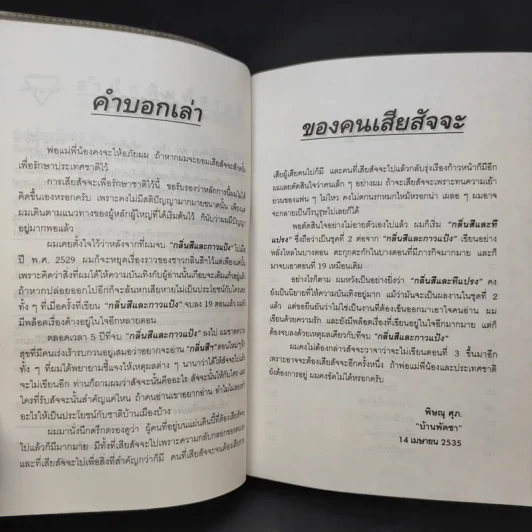 คำบอกเล่า
พ่อแม่พี่น้องคงจะให้อภัยผม ถ้าหากผมจะยอมเสียสัจจะสักครั้ง
เพื่อรักษาประเทศชาติไว้
การเสียสัจจะเพื่อรักษาชาติไว้นี้ ขอรับรองว่าหลักการนี้ผมไม่ได้
คิดขึ้นเองหรอกครับ เพราะคงไม่มีสติปัญญามากมายขนาดนั้น เพียงแต่
ผมเดินตามแนวทางของผู้หลักผู้ใหญ่ที่ได้เริ่มต้นไว้ ก็นับว่าผมมีปัญญา
อยู่มากพอแล้ว
ผมเคยตั้งใจไว้ว่าหลังจากที่ผมจบ "กลิ่นสีและกาวแป้ง" ไปเมื่อ
ปี พ.ศ. 2529 ผมก็จะหยุดเรื่องราวของชาวกลิ่นสีฯไว้แค่เพียงนั้น
เพราะคิดว่าสิ่งที่ผมได้ให้ความบันเทิงกับผู้อ่านนั้นก็อบจะเต็มแก้วอยู่แล้ว
ถ้าหากปล่อยออกไปอีกก็จะล้นแก้วเสียเปล่า ไม่มีประโยชน์กับใคร
ทั้ง ๆ ที่เมื่อครั้งที่เขียน "กลิ่นสีและกาวแป้ง" จบลง 19 ตอนแล้ว ผมยัง
มีพล็อตเรื่องค้างอยู่ในใจอีกหลายตอน
ตลอดเวลา 5 ปีที่จบ "กลิ่นสีและกาวแป้ง" ลงไป ผมขาดความ
สุขที่มีคนเร่งเร้ารบกวนอยู่เสมอว่าอยากจะอ่าน "กลิ่นสีฯ" ตอนใหม่ๆ
ทั้ง ๆ ที่ผมได้พยายามชี้แจงให้เหตุผลต่าง ๆ นานาว่าได้ให้สัจจะไปแล้ว
จะไม่เขียนอีก ท่านก็ถามผมว่าสัจจะนั้นคืออะไร สัจจะนั้นให้กับใคร และ
ใครที่รับสัจจะนั้นสำคัญแค่ไหน ถ้าคนอ่านเขาอยากอ่าน ทำไมไม่ทำ
อะไรให้เป็นประโยชน์กับชาติบ้านเมืองบ้าง
ผมมานั่งนึกตรึกตรองดูว่า ผู้คนที่อยู่บนแผ่นดินนี้ที่ต้องเสียสัจจะ
ไปแล้วก็มีมากมาย มีทั้งที่เสียสัจจะไปเพราะความกลับกลอกของตนเอง
และที่เสียสัจจะไปเพื่อสิ่งที่สำคัญกว่าก็มี คนที่เสียสัจจะจนต้อง
ของคนเสียสัจจะ
เสียผู้เสียคนไปก็มี และคนที่เสียสัจจะไปแล้วกลับรุ่งเรืองก้าวหน้าก็มีอีก
ผมเลยตัดสินใจว่าคนเล็ก ๆ อย่างผม ถ้าจะเสียสัจจะเพราะทนความเย้า
ยวนของแฟน ๆ ไม่ไหว คงไม่ตกนรกหมกไหม้หรอกน่า เผลอ ๆ ผมอาจ
จะกลายเป็นวีรบุรุษไปเลยก็ได้
พอตัดสินใจอย่างไม่อายตัวเองไปแล้ว ผมก็เริ่ม "กลิ่นสีและที
แปรง" ซึ่งถือว่าเป็นชุดที่ 2 ต่อจาก "กลิ่นสีและกาวแป้ง" เขียนอย่าง
หลั่งไหลในบางตอน ตะกุกตะกักในบางตอนที่มีภารกิจมากมาย และก็
มาจบเอาตอนที่ 19 เหมือนเดิม
อย่างไรก็ตาม ผมหวังเป็นอย่างยิ่งว่า "กลิ่นสีและทีแปรง" คง
ยังเป็นนิยายที่ให้ความบันเทิงอยู่มาก แม้ว่ามันจะเป็นผลงานในชุดที่ 2
แล้ว แต่ขอยืนยันว่าไม่ใช่เป็นงานที่ต้องเข็นออกมาเอาใจคนอ่าน ผม
เขียนด้วยความรัก และยังมีพล็อตเรื่องที่เขียนอยู่ในใจอีกมากมาย แต่ก็
ต้องจบลงด้วยเหตุผลเดียวกับที่จบ "กลิ่นสีและกาวแป้ง"
ผมคงไม่ต้องกล่าวสัจจะวาจาว่าจะไม่เขียนตอนที่ 3 ขึ้นมาอีก
เพราะอาจจะต้องเสียสัจจะอีกครั้งหนึ่ง ถ้าพ่อแม่พี่น้องและประเทศชาติ
ยังต้องการอยู่ ผมคงขัดไม่ได้หรอกครับ
พิษณุ ศุภ.
"บ้านพัดชา"
14 เมษายน 2535